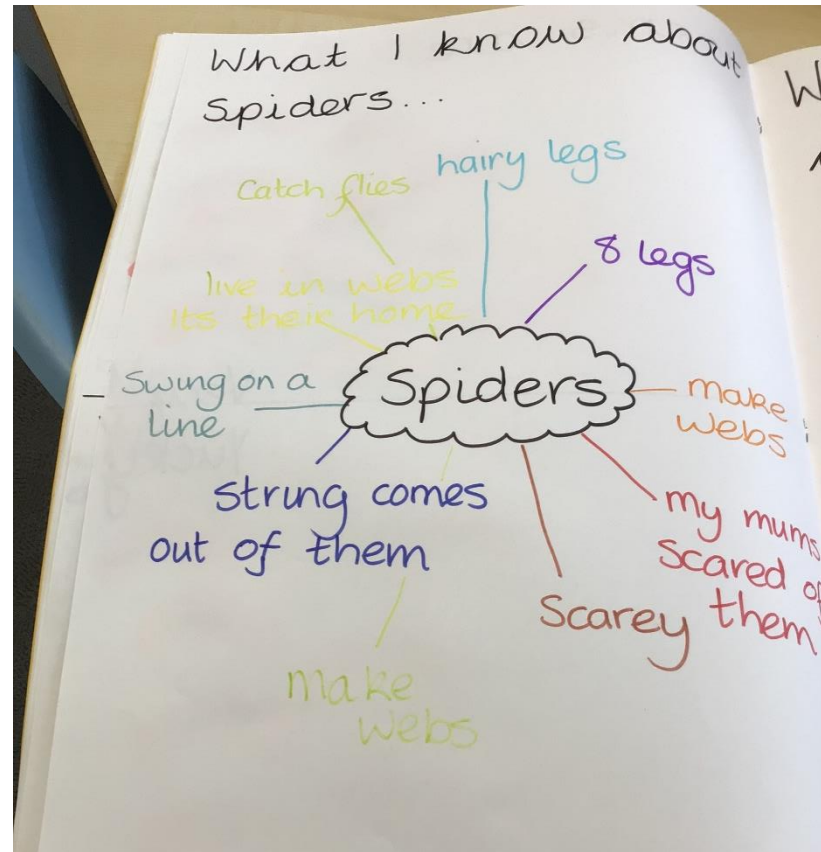 What I know about
Spiders...
hairy legs
Catch flies
8 legs
live in webs
its their home
Spiders
Swing on a
line
make
webs
strung comes
out of them
my mums
scared of
them
Scarey
make
webs
W